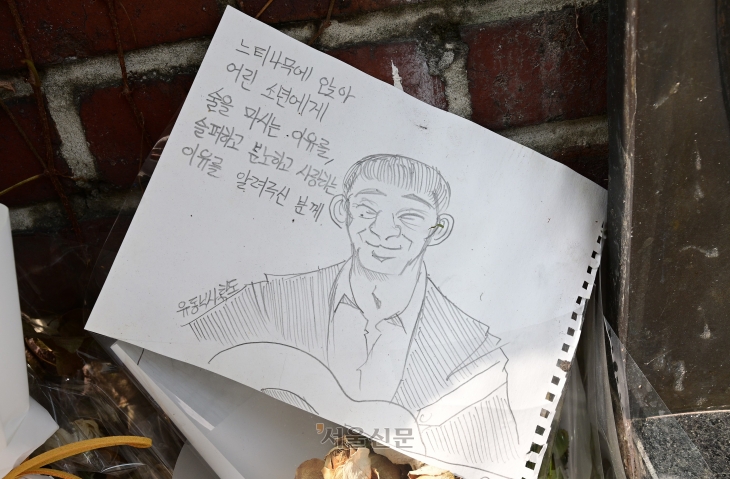 느티나무에 앉아
어린 소년에게
술을 마시는 이유를,
슬퍼하고 분노하고 사랑하는
이유를 알려주신 분께.
서울신문